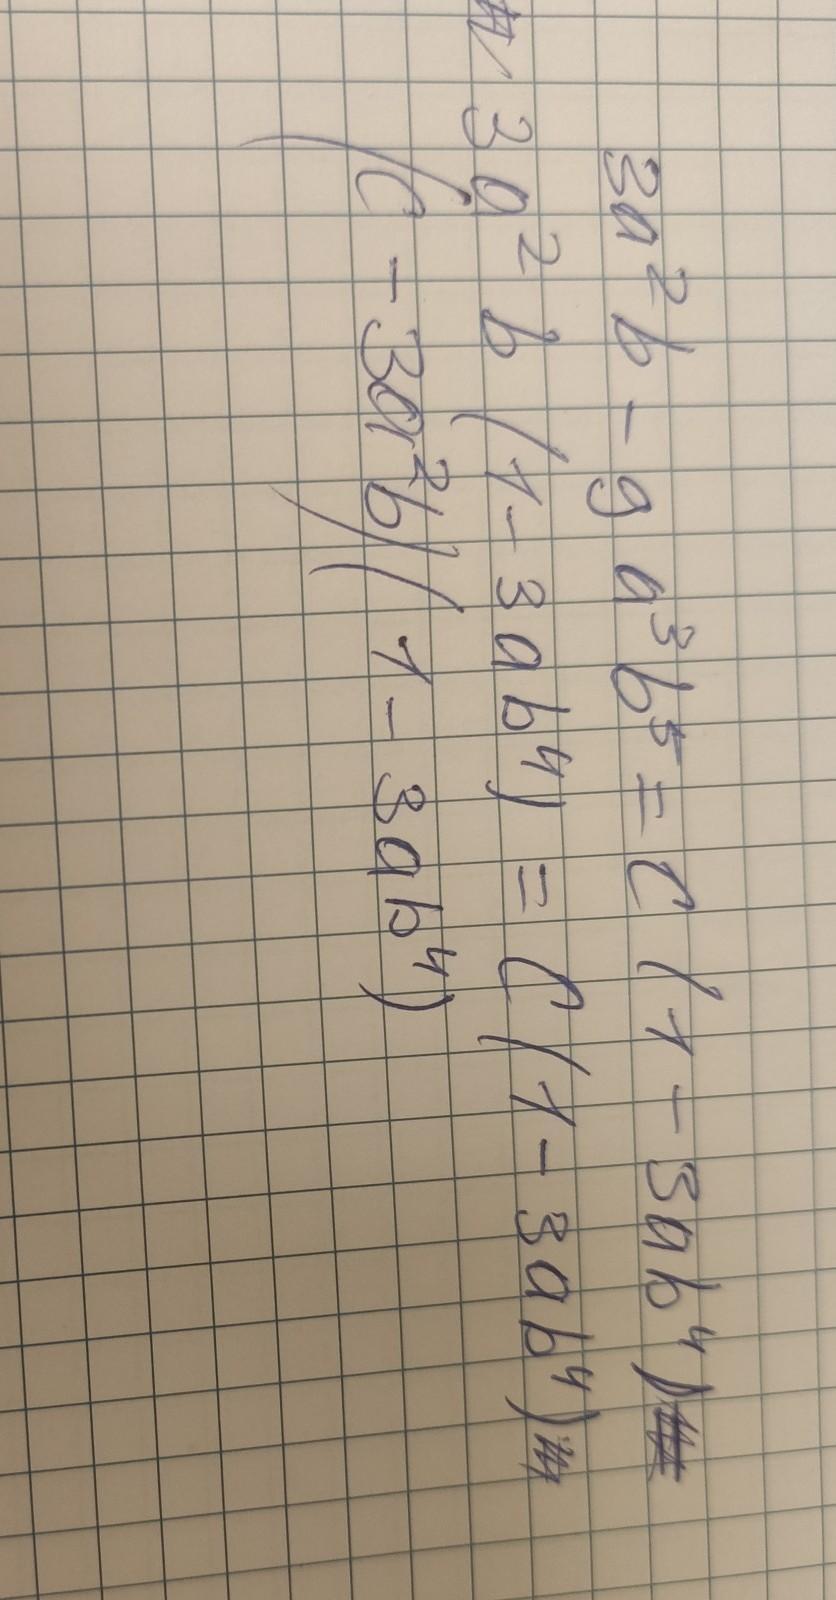 3a²b - 9a³b⁵ = C(1 - 3ab⁴)
3a²b(1 - 3ab⁴) = C(1 - 3ab⁴)
(C - 3a²b)(1 - 3ab⁴)